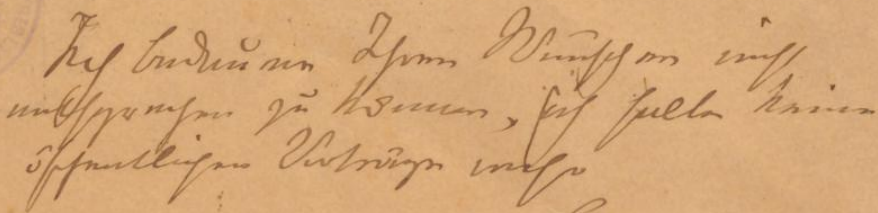 Ich bedauere Ihren Wünschen nicht
entsprechen zu können, ich halte keine
öffentlichen Vorträge mehr